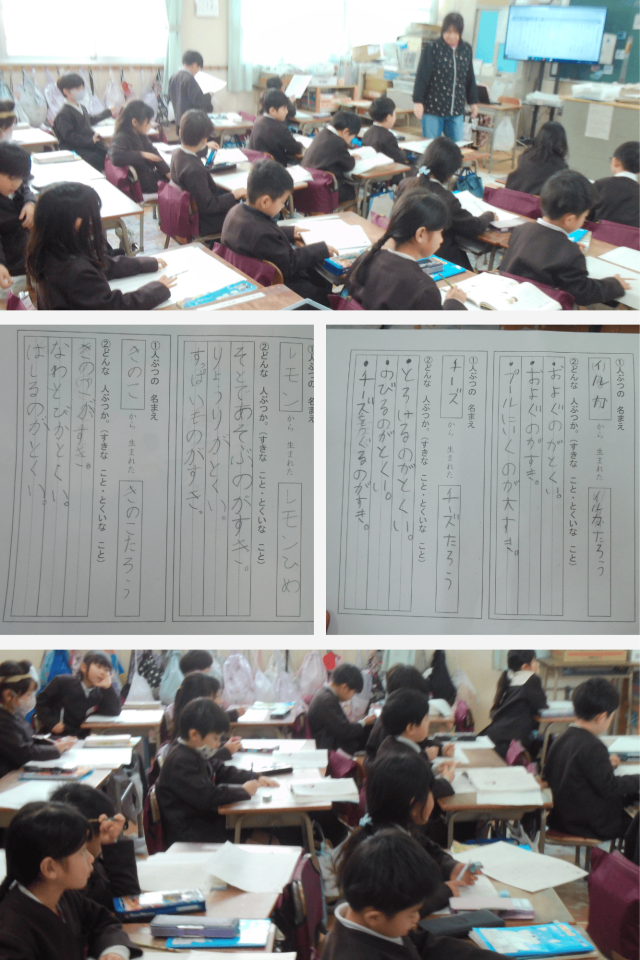 ①人ぶつの 名まえ
レモン から 生まれた レモンひめ
②どんな 人ぶつか。(すきな こと・とくいな こと)
そとであそぶのがすき。
りょうりがとくい。
すっぱいものがすき。
①人ぶつの 名まえ
きのこ から 生まれた きのこたろう
②どんな 人ぶつか。(すきな こと・とくいな こと)
きのこがすき。
なわとびがとくい。
はしるのがとくい。
①人ぶつの 名まえ
イルカ から 生まれた イルカたろう
②どんな 人ぶつか。(すきな こと・とくいな こと)
・およぐのがとくい。
・およぐのがすき。
・プールにいくのが大すき。
①人ぶつの 名まえ
チーズ から 生まれた チーズたろう
②どんな 人ぶつか。(すきな こと・とくいな こと)
・とろけるのがとくい。
・のびるのがとくい。